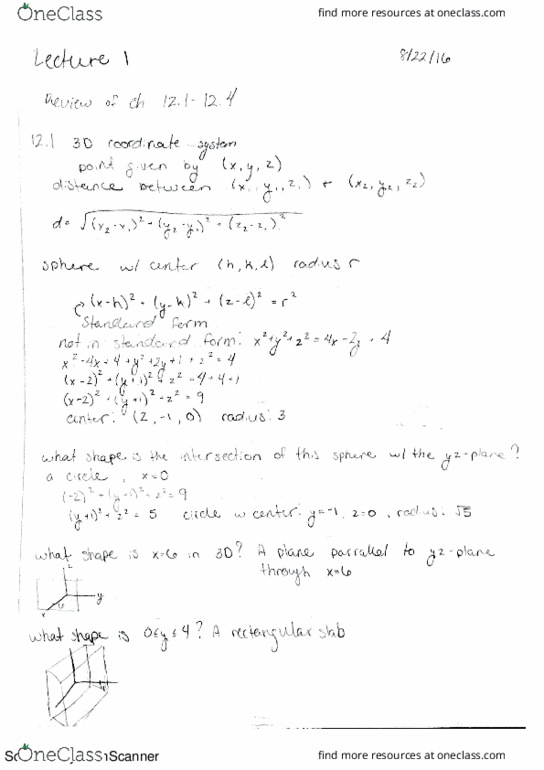 OneClass find more resources at oneclass.com
Lecture 1 8/22/16
Review of ch 12.1-12.4
12.1 3D coordinate system
point given by (x, y, z)
distance between (x₁, y₁, z₁) + (x₂, y₂, z₂)
d= √(x₂-x₁)² + (y₂-y₁)² + (z₂-z₁)²
sphere w/ center (h, k, l) radius r
(x-h)² + (y-k)² + (z-l)² = r²
Standard form
not in standard form: x²+y²+z² = 4x-2y+4
x²-4x+4+y²+2y+1+z²=4
(x-2)²+(y+1)²+z² = 4+4+1
(x-2)²+(y+1)²+z² = 9
center: (2, -1, 0) radius: 3
what shape is the intersection of this sphere w/ the yz-plane?
a circle, x=0
(-2)²+(y+1)²+z²=9
(y+1)²+z² = 5 circle w center: y=-1, z=0, radius: √5
what shape is x=6 in 3D? A plane parrallel to yz-plane
through x=6
z
y
x
6
what shape is 0≤y≤4? A rectangular slab
OneClass Scanner find more resources at oneclass.com